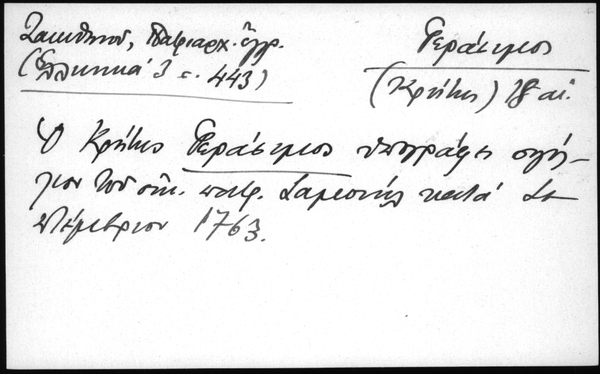 Ζακυθηνού, Πατριαρχ. έγγρ.
(Ελληνικά 3 σ. 443)
Γεράσιμος
(Κρήτης) 18 αι.
Ο Κρήτης Γεράσιμος υπογράφει σιγίλ-
λιον του οικ. πατρ. Σαμουήλ κατά Σε-
πτέμβριον 1763.